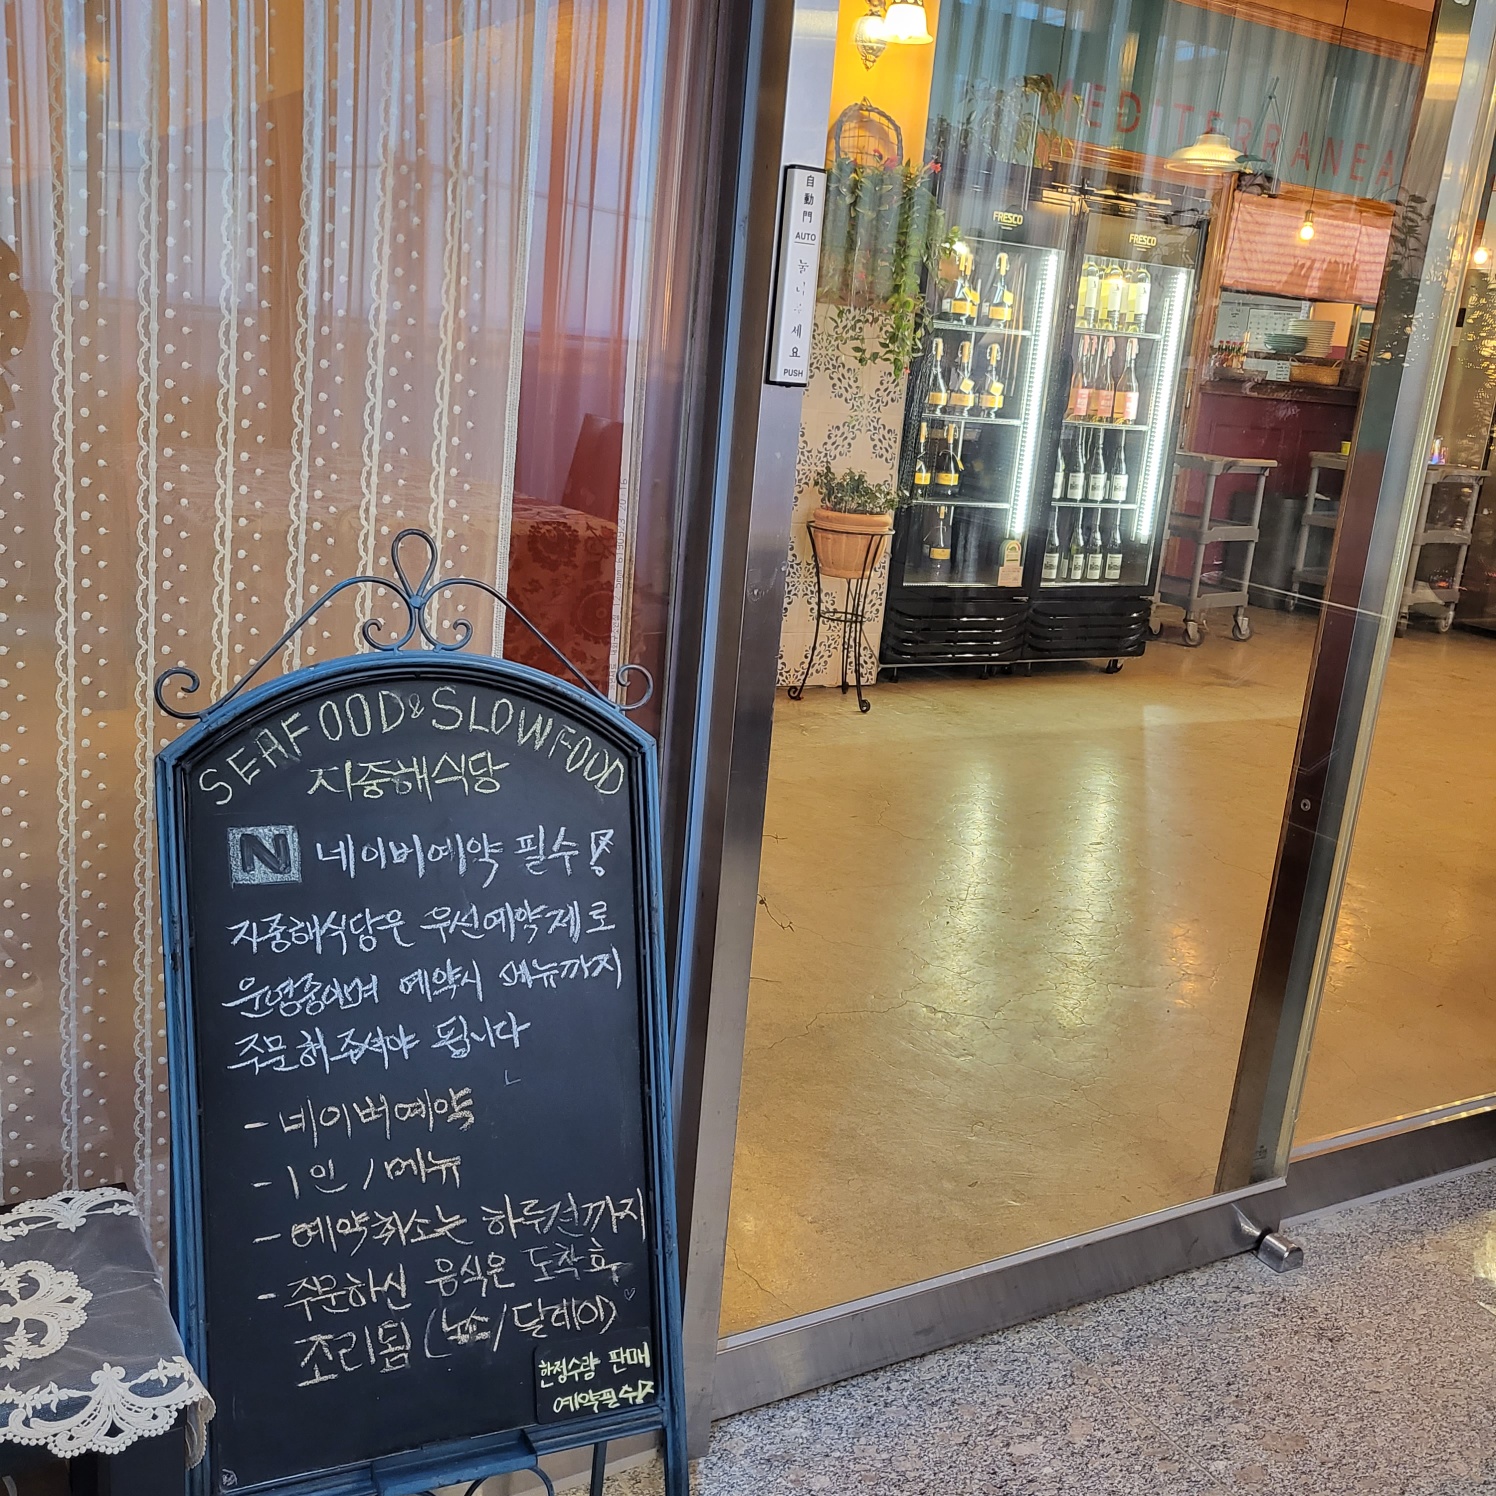 MEDITERRANEA
FRESCO
FRESCO
自動門
AUTO
세요
PUSH
SEAFOOD&SLOWFOOD
지중해식당
N 네이버예약 필수!
지중해식당은 우선예약제로
운영중이며 예약시 메뉴까지
주문해주셔야 됩니다
- 네이버예약
- 1인 / 메뉴
- 예약취소는 하루전까지
- 주문하신 음식은 도착후
조리됨 (노쇼/딜레이)
한정수량 판매
예약필수!